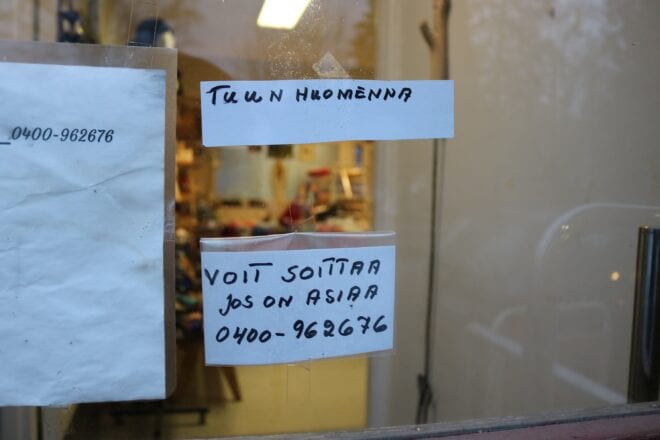 0400-962676
TUUN HUOMENNA
VOIT SOITTAA
JOS ON ASIAA
0400-962676